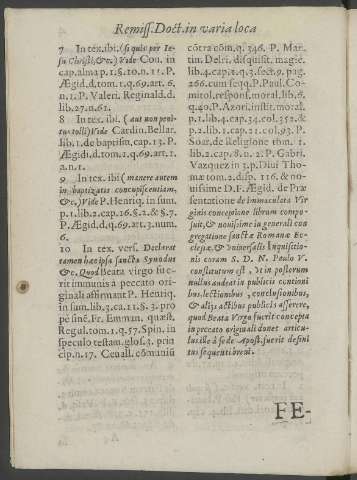 Remiss. Doct. in varia loca
7 In tex. ibi. (si quis per Ie-
su Christi, &c.) Vide Cou. in
cap. alma p. 1. §. 10. n. 15. P.
Ægid. d. tom. 1. q. 69. art. 6.
n. 12. P. Valeri. Reginald. d.
lib. 27. n. 61.
8 In tex. ibi. (aut non peni-
tus tolli) Vide Cardin. Bellar.
lib. 1. de baptism. cap. 13. P.
Ægid. d. tom. 2. q. 69. art. 1.
n. 1.
9 In tex. ibi (manere autem
in baptizatis concupiscentiam,
&c.) Vide P. Henriq. in sum.
p. 1. lib. 2. cap. 26. §. 2. & §. 7.
P. Ægid. d. q. 69. art. 3. num.
6.
10 In tex. vers. Declarat
tamen hæc ipsa sancta Synodus
&c. Quod Beata virgo fue-
rit immunis à peccato ori-
ginali affirmant P. Henriq.
in sum. lib. 3. ca. 11. §. 3. pro
pe finē. Fr. Emmun. quæst.
Regul. tom. 1. q. 57. Spin. in
speculo testam. glos. 3. prin
cip. n. 17. Ceuall. cōmuniū
cōtra cōm. q. 346. P. Mar.
tin. Delri. disquisit. magic.
lib. 4. cap. 1. q. 3. sect. 9. pag.
266. cum seqq. P. Paul. Co-
mitol. respons. moral. lib. 6.
q. 40. P. Azori. instit. moral.
p. 1. lib. 4. cap. 34. col. 352. &
p. 2. lib. 1. cap. 21. col. 93. P.
Soar. de Religione tom. 1.
lib. 2. cap. 8. n. 2. P. Gabri.
Vazquez in 3. p. Diui Thom
æ tom. 2. disp. 116. & no-
uissime D. F. Ægid. de Præ
sentatione de immaculata Vir
ginis conceptione librum compo-
suit, & nouissime in generali con
gregatione sanctæ Romanæ Ec-
clesiæ, & vniuersalis Inquisitio-
nis coram S. D. N. Paulo V.
constitutum est, vt in posterum
nullus audeat in publicis concioni
bus, lectionibus, conclusionibus,
& alijs actibus publicis asserere,
quod Beata Virgo fuerit concepta
in peccato originali donec articu-
lus ille à sede Apost. fuerit defini
tus sequenti breui.
FE-